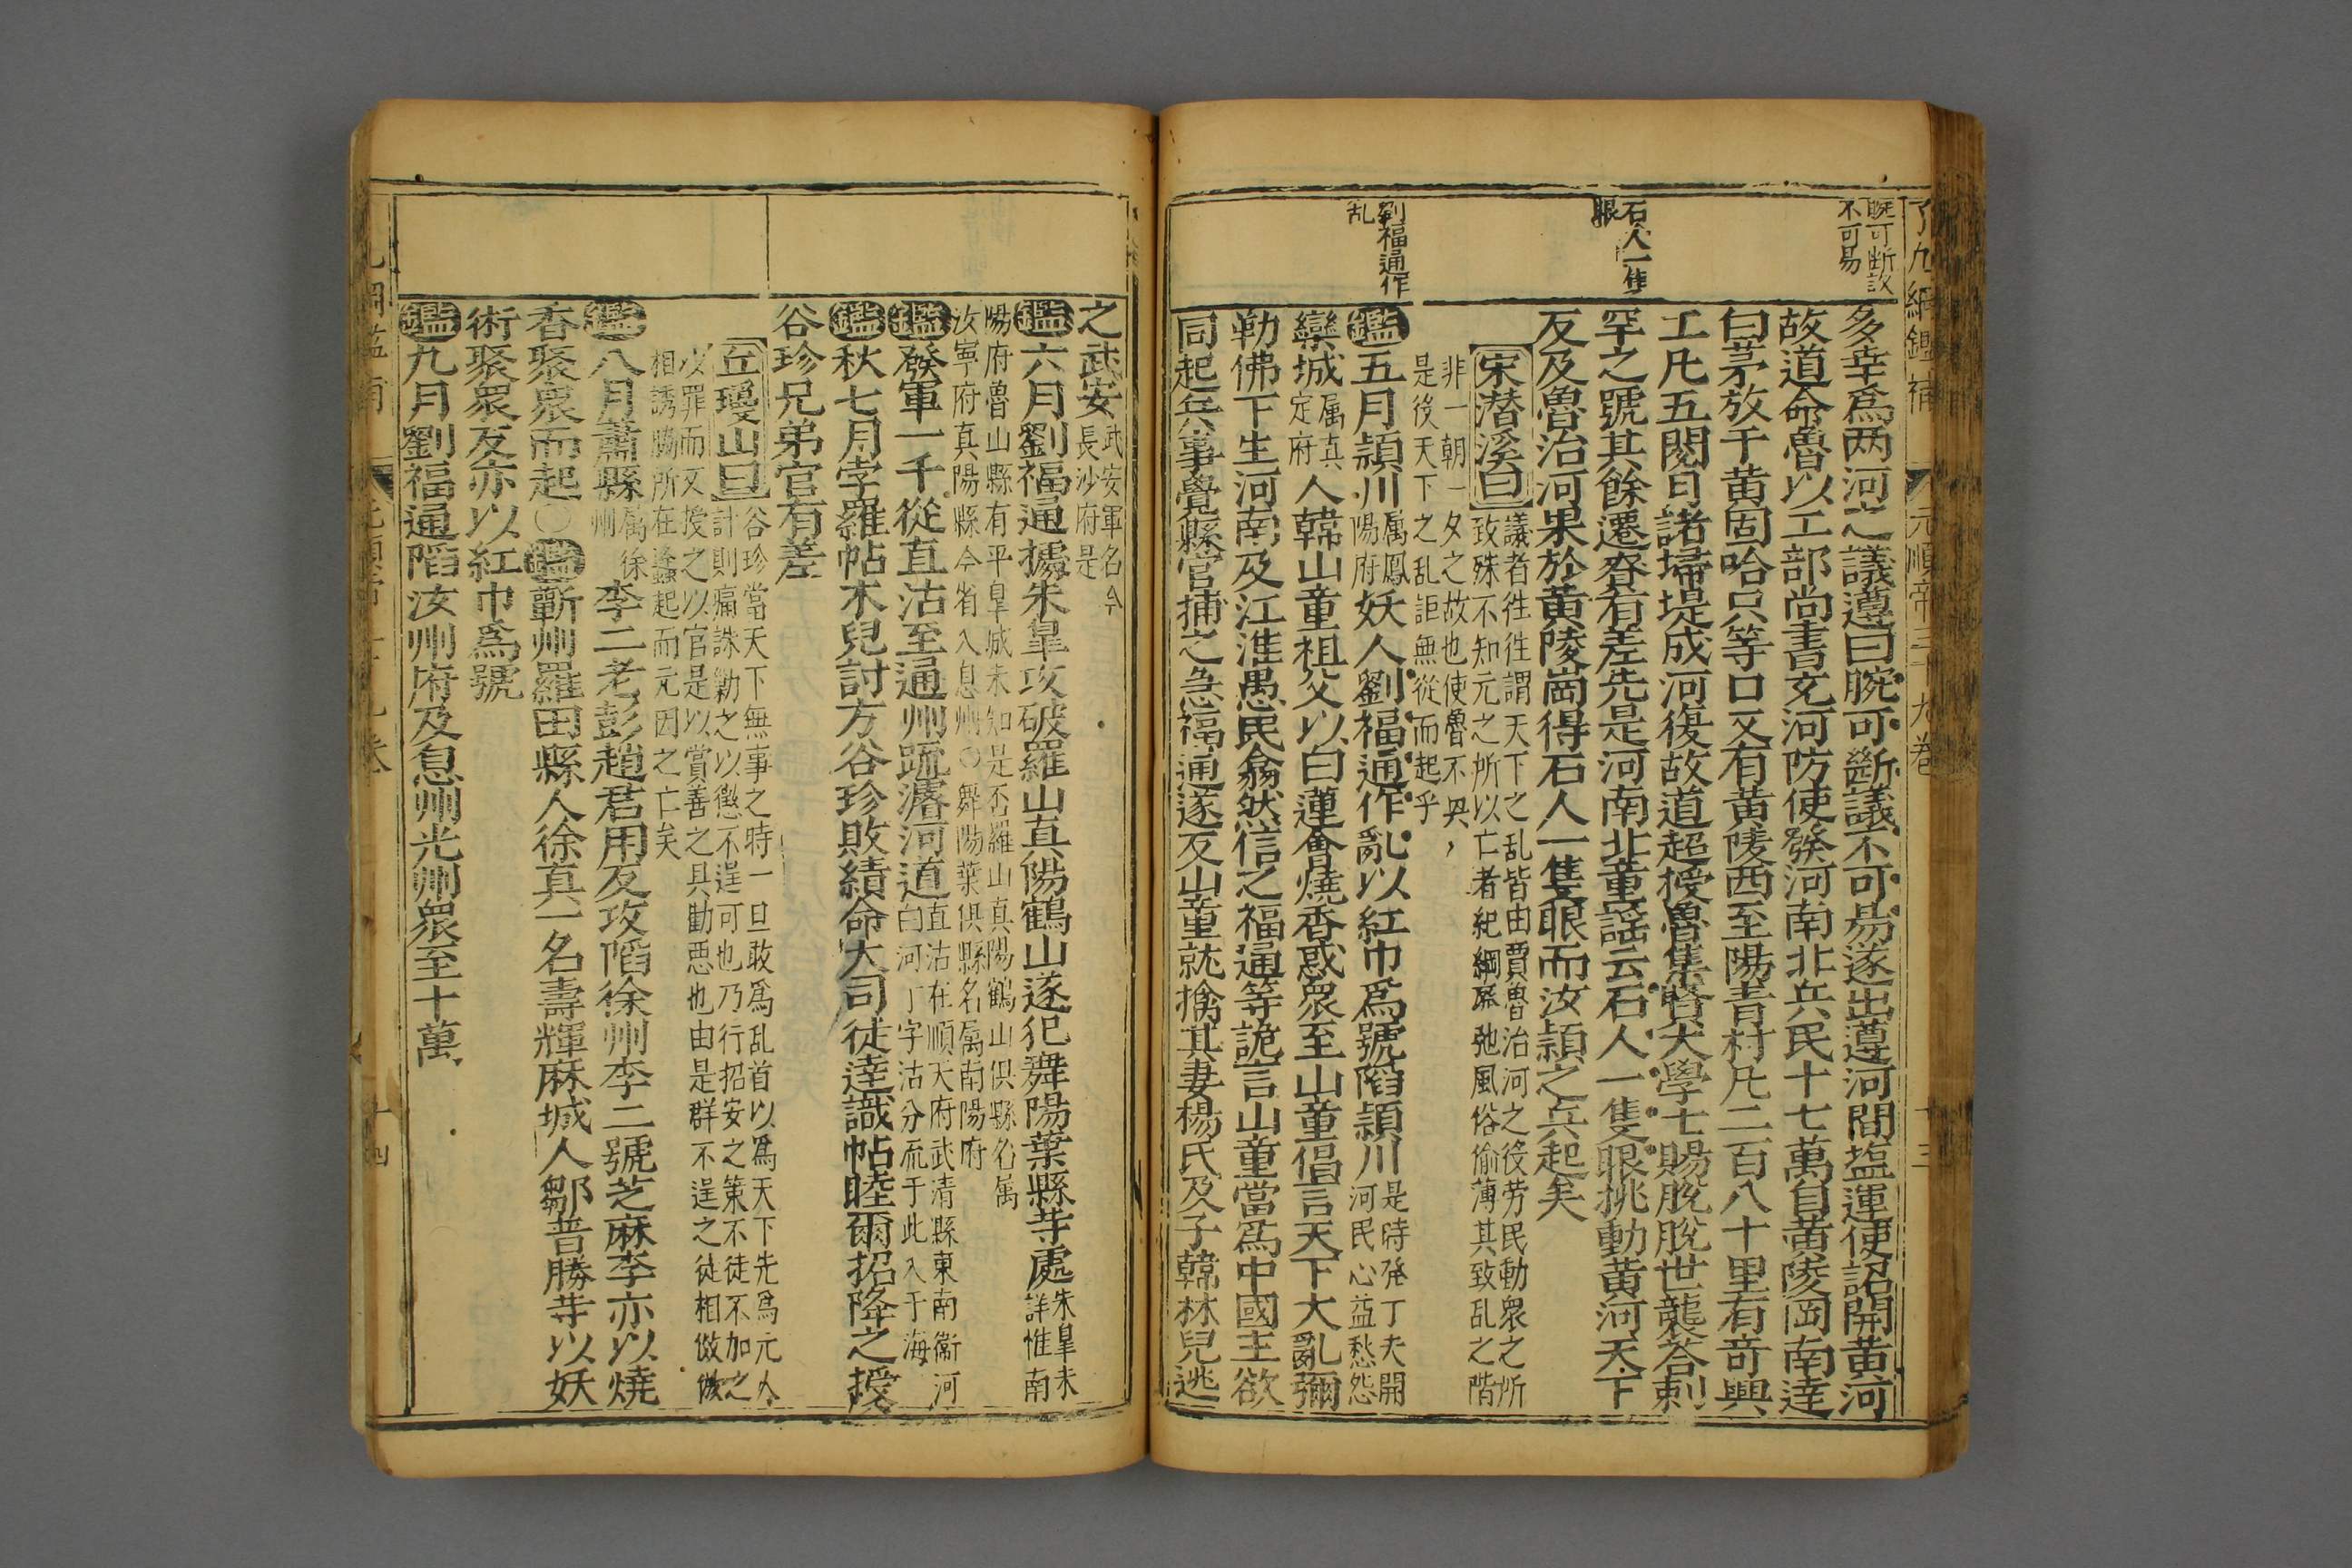 腕可断議
不可易
石人一隻
眼
劉福通作
乱
多幸爲两河之議遵曰腕可斷議不可易遂出遵河間塩運使詔開黄河
故道命魯以工部尚書充河防使發河南北兵民十七萬自黄陵岡南逹
白茅放于黄固哈只等口又有黄陵西至陽青村凡二百八十里有竒興
工凡五閱月諸埽堤成河復故道超授魯集賢大學士賜脫脫世襲荅剌
罕之號其餘遷賚有差先是河南北童謡云石人一隻眼挑動黄河天下
反及魯治河果於黄陵崗得石人一隻眼而汝潁之兵起矣
宋潜溪曰
議者徃徃謂天下之乱皆由賈魯治河之役労民動衆之所
致殊不知元之所以亡者紀綱廢弛風俗偷薄其致乱之階
非一朝一夕之故也使魯不興
是後天下之乱詎無從而起乎
鑑五月潁川属鳳陽府妖人劉福通作亂以紅巾爲號陷潁川是時發丁夫開河民心益愁怨
欒城属真定府人韓山童祖父以白蓮會燒香惑衆至山童倡言天下大亂彌
勒佛下生河南及江淮愚民翕然信之福通等詭言山童當爲中國主欲
同起兵事覺縣官捕之急福通遂反山童就擒其妻楊氏及子韓林兒逃
之武安武安軍名今長沙府是
鑑六月劉福通據朱皐攻破羅山真陽鶴山遂犯舞陽葉縣䒭處朱皐未詳惟南
陽府魯山縣有平皐城未知是否羅山真陽鶴山俱縣名属
汝寧府真陽縣今省入息州○舞陽葉俱縣名属南陽府
鑑發軍一千從直沽至通州疏濬河道直沽在順天府武清縣東南衞河白河丁字沽分流于此入于海
鑑秋七月孛羅帖木兒討方谷珍敗績命大司徒逹識帖睦爾招降之授
谷珍兄弟官有差
丘瓊山曰
谷珍當天下無事之時一旦敢爲乱首以爲天下先爲元人
計則痛誅勦之以徴不逞可也乃行招安之策不徒不加之
以罪而又授之以官是以賞善之具勸悪也由是群不逞之徒相傚倣
相誘脇所在蠭起而元因之亡矣
鑑八月蕭縣属徐州李二老彭趙君用反攻陷徐州李二號芝麻李亦以燒
香聚衆而起○鑑蘄州羅田縣人徐真一名壽輝麻城人鄒普勝䒭以妖
術聚衆反亦以紅巾爲號
鑑九月劉福通陷汝州府及息州光州衆至十萬